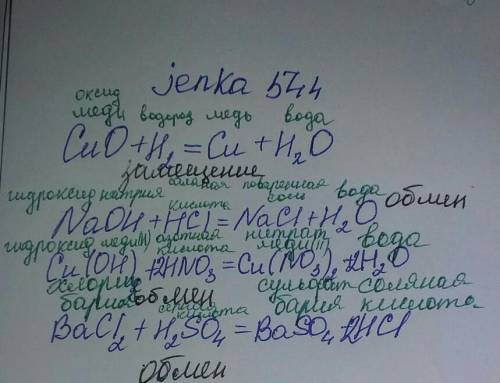 jenka 544
оксид
меди водород медь вода
CuO + H₂ = Cu + H₂O
замещение
гидроксид натрия соляная кислота поваренная соль вода
NaOH + HCl = NaCl + H₂O обмен
гидроксид меди(II) азотная кислота нитрат меди(II) вода
Cu(OH) + 2HNO₃ = Cu(NO₃)₂ + 2H₂O
хлорид бария серная кислота сульфат бария соляная кислота
обмен
BaCl₂ + H₂SO₄ = BaSO₄ + 2HCl
обмен